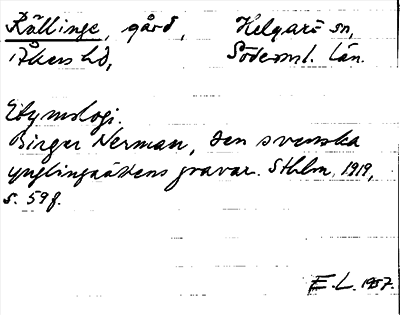 Kållinge, gård, Helgarö sn,
Åkers hd, Söderml. län.
Etymologi.
Birger Nerman, Den svenska
ynglingaättens gravar. Sthlm, 1919,
s. 59 f.
E. L. 1957.